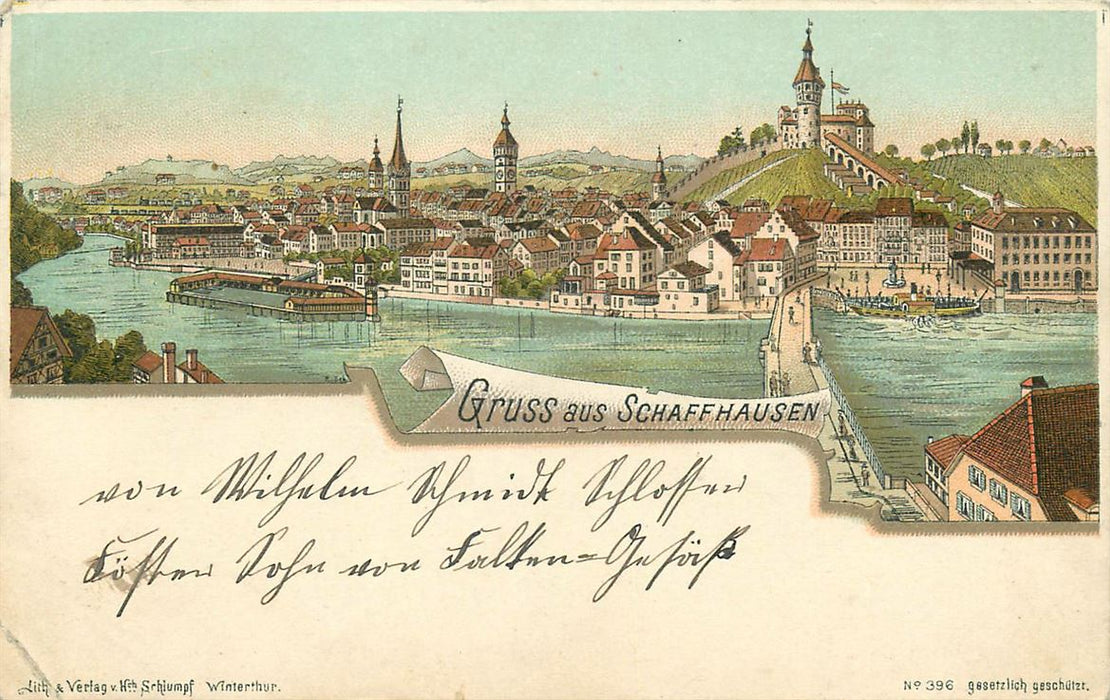 Gruss aus Schaffhausen
von Wilhelm Schmidt Schlosser
Sohn von Falken=Gesäß
Lith & Verlag v. Hch Schlumpf Winterthur.
No 396 gesetzlich geschützt.